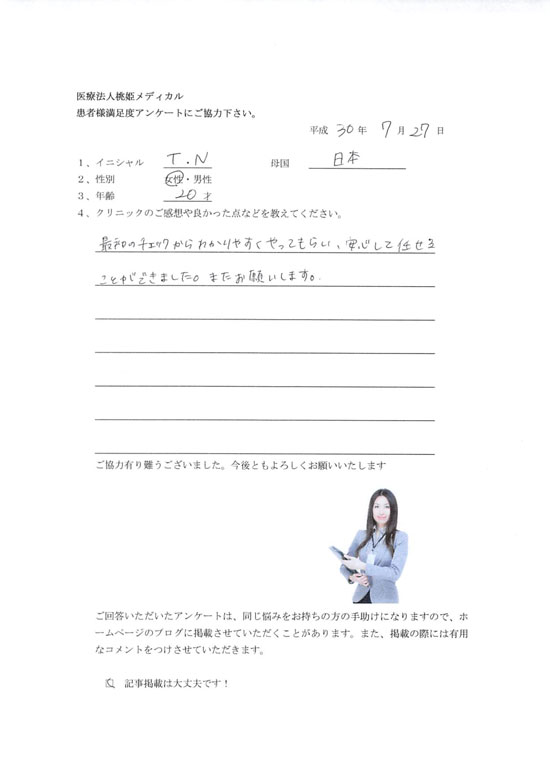 医療法人桃姫メディカル
患者様満足度アンケートにご協力下さい。
平成 30 年 7 月 27 日
1、イニシャル T.N 母国 日本
2、性別 女性・男性
3、年齢 20 才
4、クリニックのご感想や良かった点などを教えてください。
最初のチェックからわかりやすくやってもらい、安心して任せる
ことができました。またお願いします。
ご協力有り難うございました。今後ともよろしくお願いいたします
ご回答いただいたアンケートは、同じ悩みをお持ちの方の手助けになりますので、ホ
ームページのブログに掲載させていただくことがあります。また、掲載の際には有用
なコメントをつけさせていただきます。
☑ 記事掲載は大丈夫です!